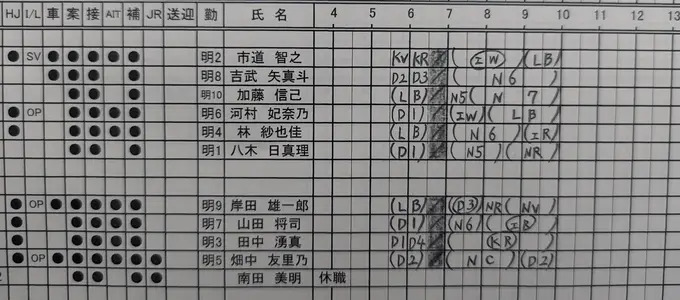 HJ I/L 車 案 接 AIT 補 JR 送迎 勤 氏 名 4 5 6 7 8 9 10 11 12 13
● SV ● ● ● ● ● 明2 市道 智之 KV KR ( IW )( LB )
● ● ● ● 明8 吉武 矢真斗 D2 D3 ( N 6 )
● ● ● 明10 加藤 信己 ( L B ) N5 ( N 7 )
● OP ● ● ● ● 明6 河村 妃奈乃 ( D 1 ) ( IW )( L B )
● ● ● ● ● 明4 林 紗也佳 ( L B ) ( N 6 )( IR )
● ● ● 明1 八木 日真理 ( D 1 ) ( N5 )( NR )
● OP ● ● ● ● ● 明9 岸田 雄一郎 ( L B ) ( D3 ) NR ( NV )
● ● ● ● ● 明7 山田 将司 ( D 1 ) ( N6 )( IB )
● ● ● ● ● 明3 田中 湧真 D1 D4 ( KR )
● OP ● ● ● ● ● ● 明5 畑中 友里乃 ( D 2 ) ( N C )( D2 )
● ● ● ● 南田 美明 休職